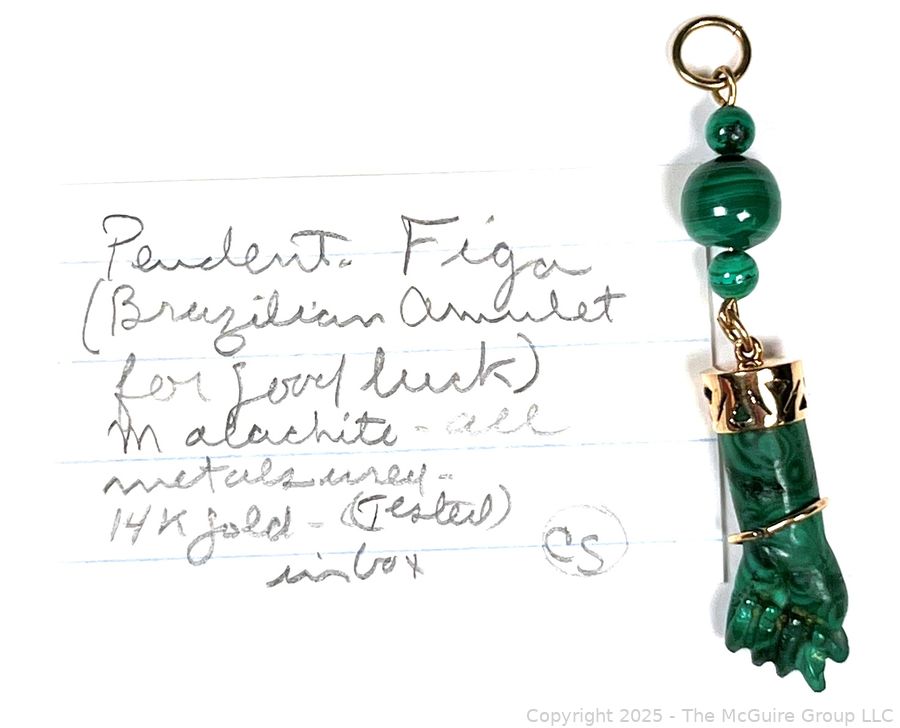 Pendent. Figa
(Brazilian Amulet
for good luck)
Malachite - all
metals
14K gold - (Tested)
in box
CS
Copyright 2025 - The McGuire Group LLC